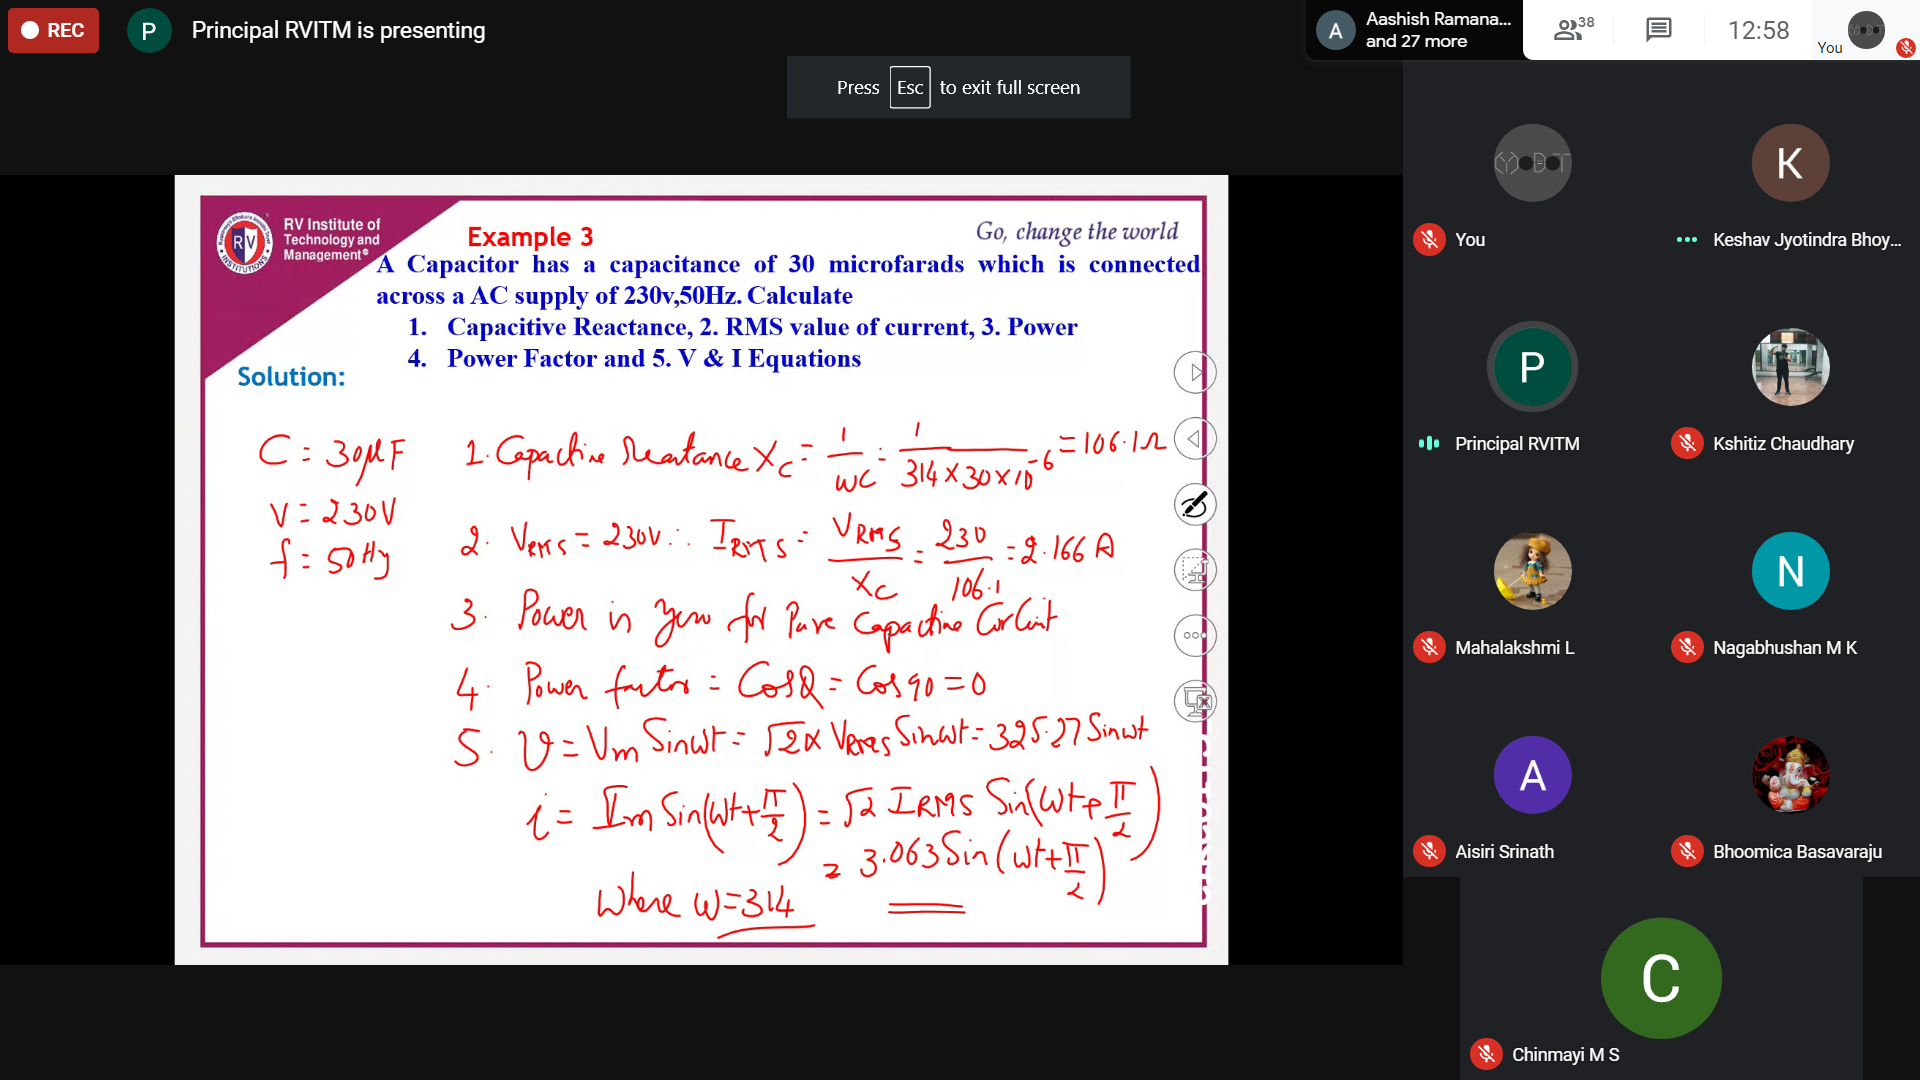 REC
P
Principal RVITM is presenting
A
Aashish Ramana...
and 27 more
38
12:58
You
Press Esc to exit full screen
RV Institute of
Technology and
Management®
RV
INSTITUTIONS
Go, change the world
Example 3
A Capacitor has a capacitance of 30 microfarads which is connected
across a AC supply of 230v,50Hz. Calculate
1. Capacitive Reactance, 2. RMS value of current, 3. Power
4. Power Factor and 5. V & I Equations
Solution:
C = 30μF
V = 230V
f = 50Hz
1. Capacitive Reactance Xc = 1/ωC = 1/314×30×10^-6 = 106.1Ω
2. VRMS = 230V ∴ IRMS = VRMS/Xc = 230/106.1 = 2.166 A
3. Power is zero for Pure Capacitive Circuit
4. Power factor = CosØ = Cos 90 = 0
5. v = Vm Sinωt = √2 × VRMS Sinωt = 325.27 Sinωt
i = Im Sin(ωt+π/2) = √2 IRMS Sin(ωt+π/2)
= 3.063 Sin(ωt+π/2)
Where ω=314
You
K
Keshav Jyotindra Bhoy...
P
Principal RVITM
Kshitiz Chaudhary
Mahalakshmi L
N
Nagabhushan M K
A
Aisiri Srinath
Bhoomica Basavaraju
C
Chinmayi M S